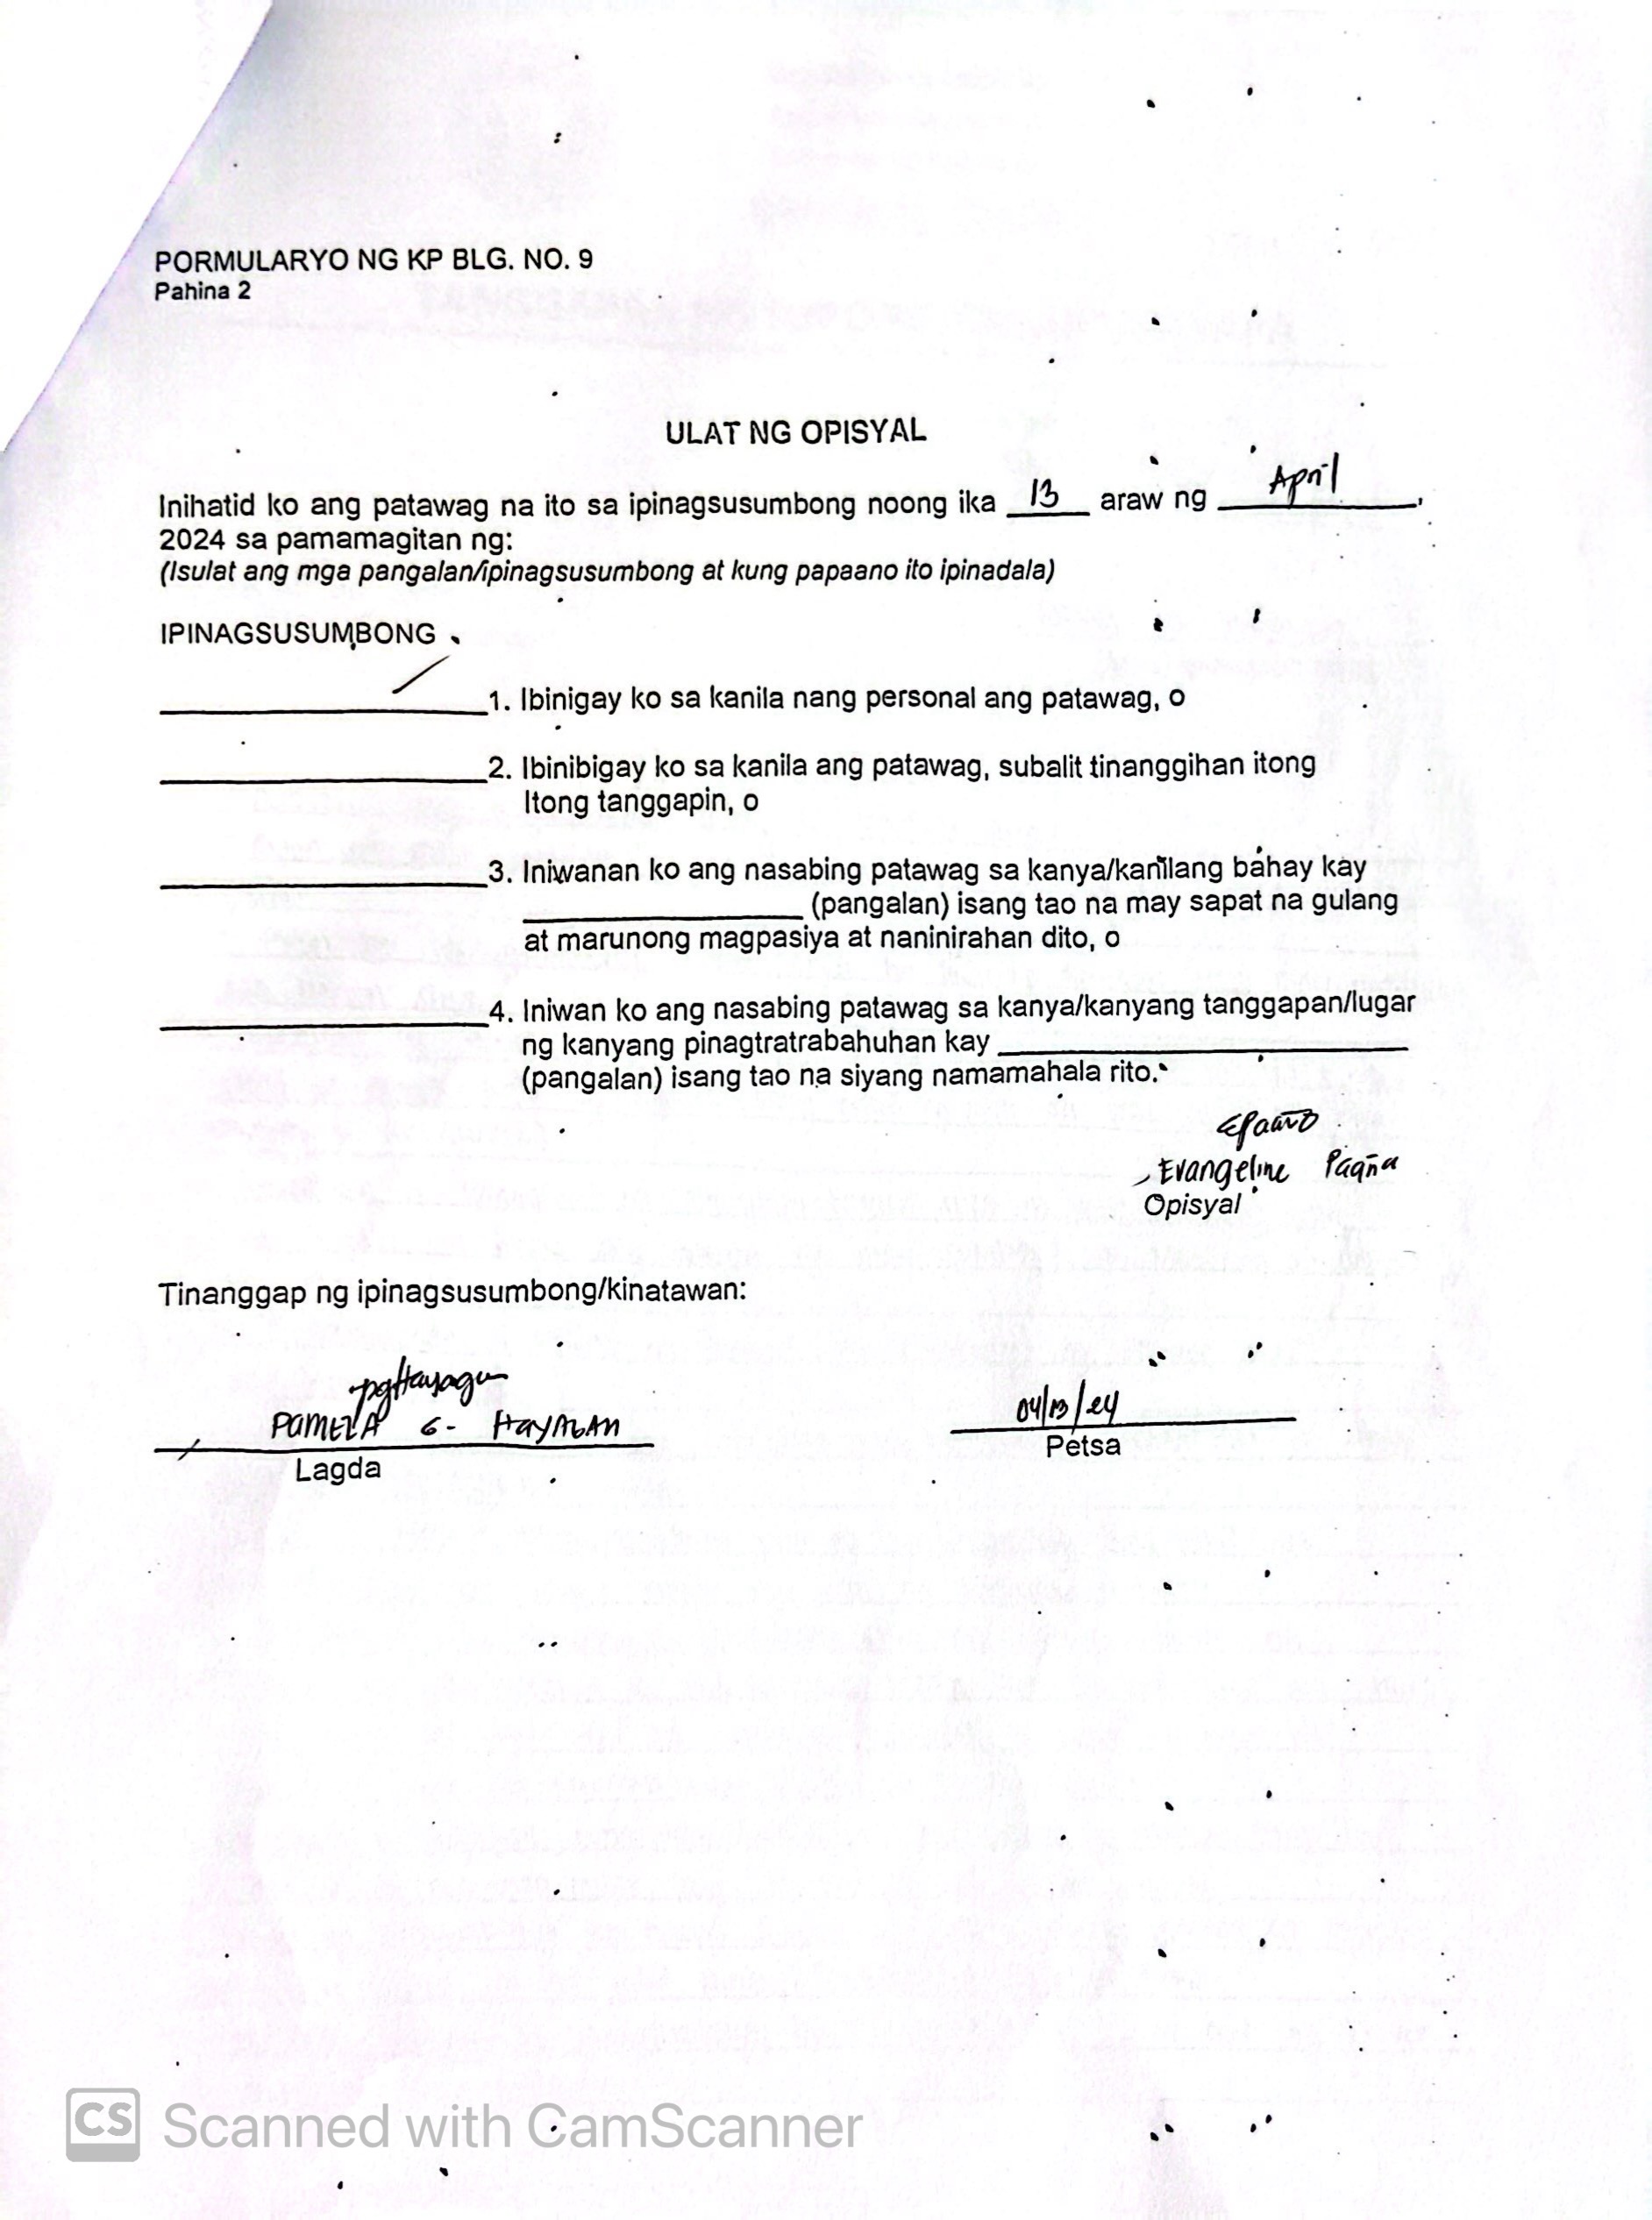 PORMULARYO NG KP BLG. NO. 9
Pahina 2
ULAT NG OPISYAL
Inihatid ko ang patawag na ito sa ipinagsusumbong noong ika 13 araw ng April,
2024 sa pamamagitan ng:
(Isulat ang mga pangalan/ipinagsusumbong at kung papaano ito ipinadala)
IPINAGSUSUMBONG
1. Ibinigay ko sa kanila nang personal ang patawag, o
2. Ibinibigay ko sa kanila ang patawag, subalit tinanggihan itong
Itong tanggapin, o
3. Iniwanan ko ang nasabing patawag sa kanya/kanilang bahay kay
(pangalan) isang tao na may sapat na gulang
at marunong magpasiya at naninirahan dito, o
4. Iniwan ko ang nasabing patawag sa kanya/kanyang tanggapan/lugar
ng kanyang pinagtratrabahuhan kay
(pangalan) isang tao na siyang namamahala rito.
Evangeline Pagña
Opisyal
Tinanggap ng ipinagsusumbong/kinatawan:
PAMELA G. HAYAGAN 04/13/24
Lagda Petsa
CS Scanned with CamScanner